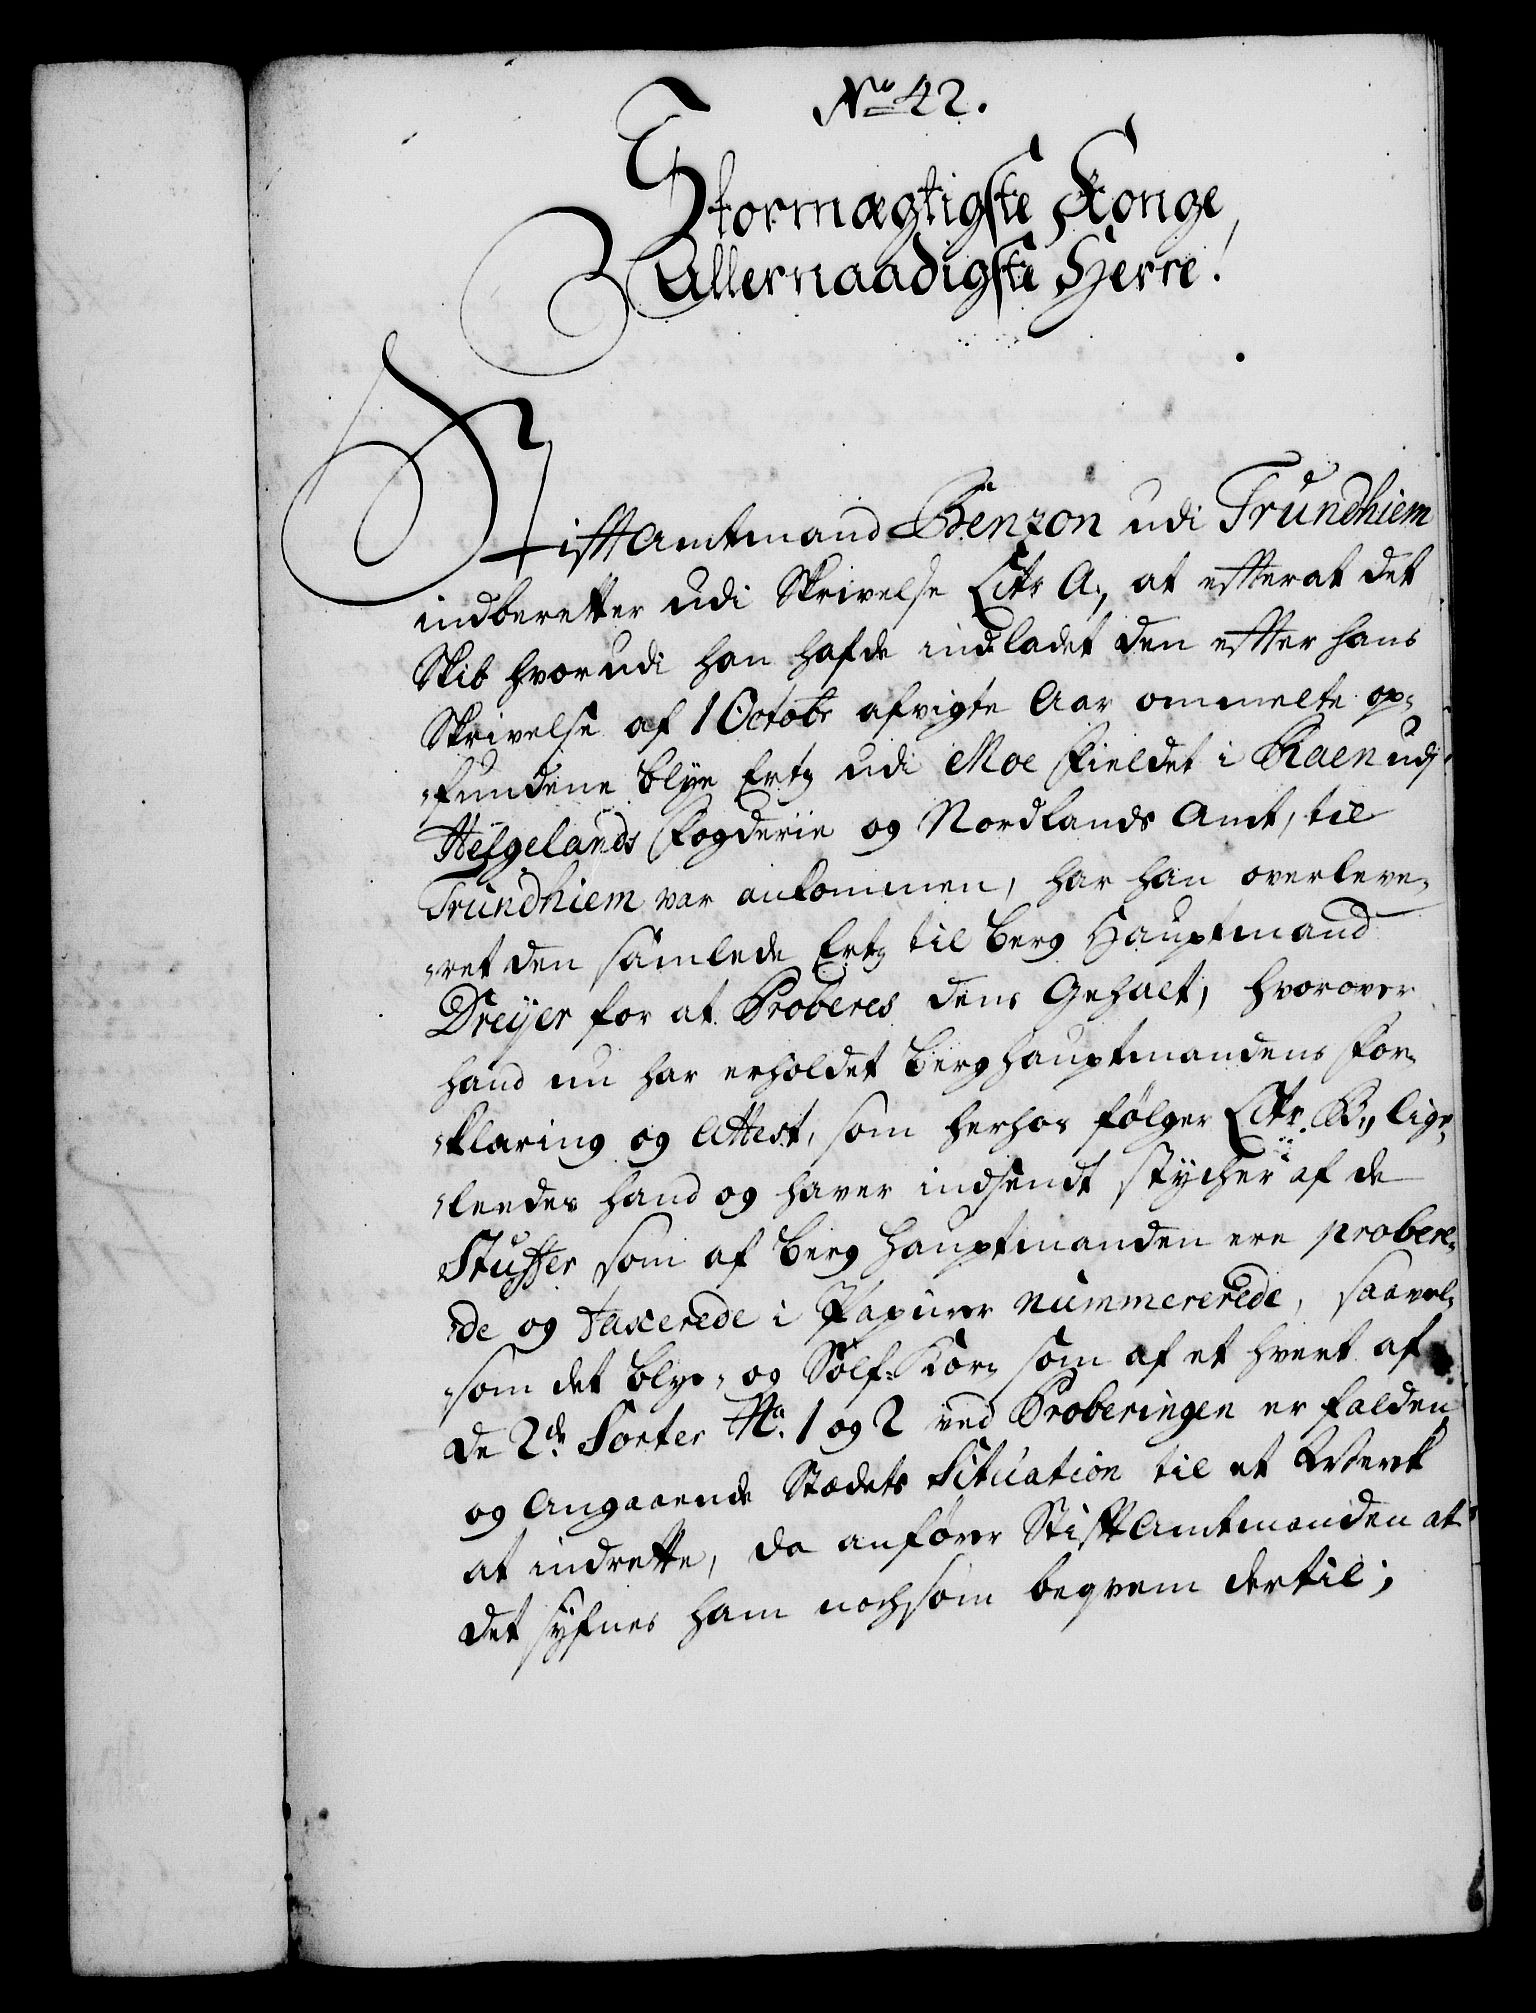 No 42.
Stormægtigste Konge,
Allernaadigste Herre!
Stift Amtmand Benzon udi Trundhiem
indberetter udi Skrivelse Litr A:, at efterat det
Skib hvorudi han hafde indladet den efter hans
Skrivelse af 1 Octobr afvigte Aar ommelte op-
fundene blye Ertz udi Moe Fieldet i Raen udj
Helgelands Fogderie og Nordlands Amt, til
Trundhiem var ankommen, har han overleve-
ret den samlede Ertz til Berg Hauptmand
Dreyer for at Proberes dens Gehalt, hvorover
hand nu har erholdet Berghauptmandens For-
klaring og Attest, som herhos følger Litr. B:, lige-
leedes hand og haver indsendt stycher af de
Stuffer som af Berg Hauptmanden ere probere-
de og taxerede i Papirer nummererede, saavel-
som det blye- og Sølf-Korn som af et hvert af
de 2de Sorter No. 1 og 2 ved Proberingen er falden
og Angaaende Stædets Situation til et Værk
at indrette, da anfører Stift Amtmanden at
det syfnes ham nochsom beqvem dertil;